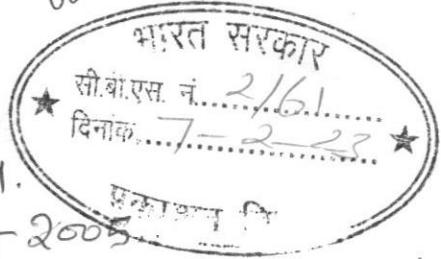 भारत सरकार
सी.बी.एस. नं. 2161
दिनांक 7-2-23
2005